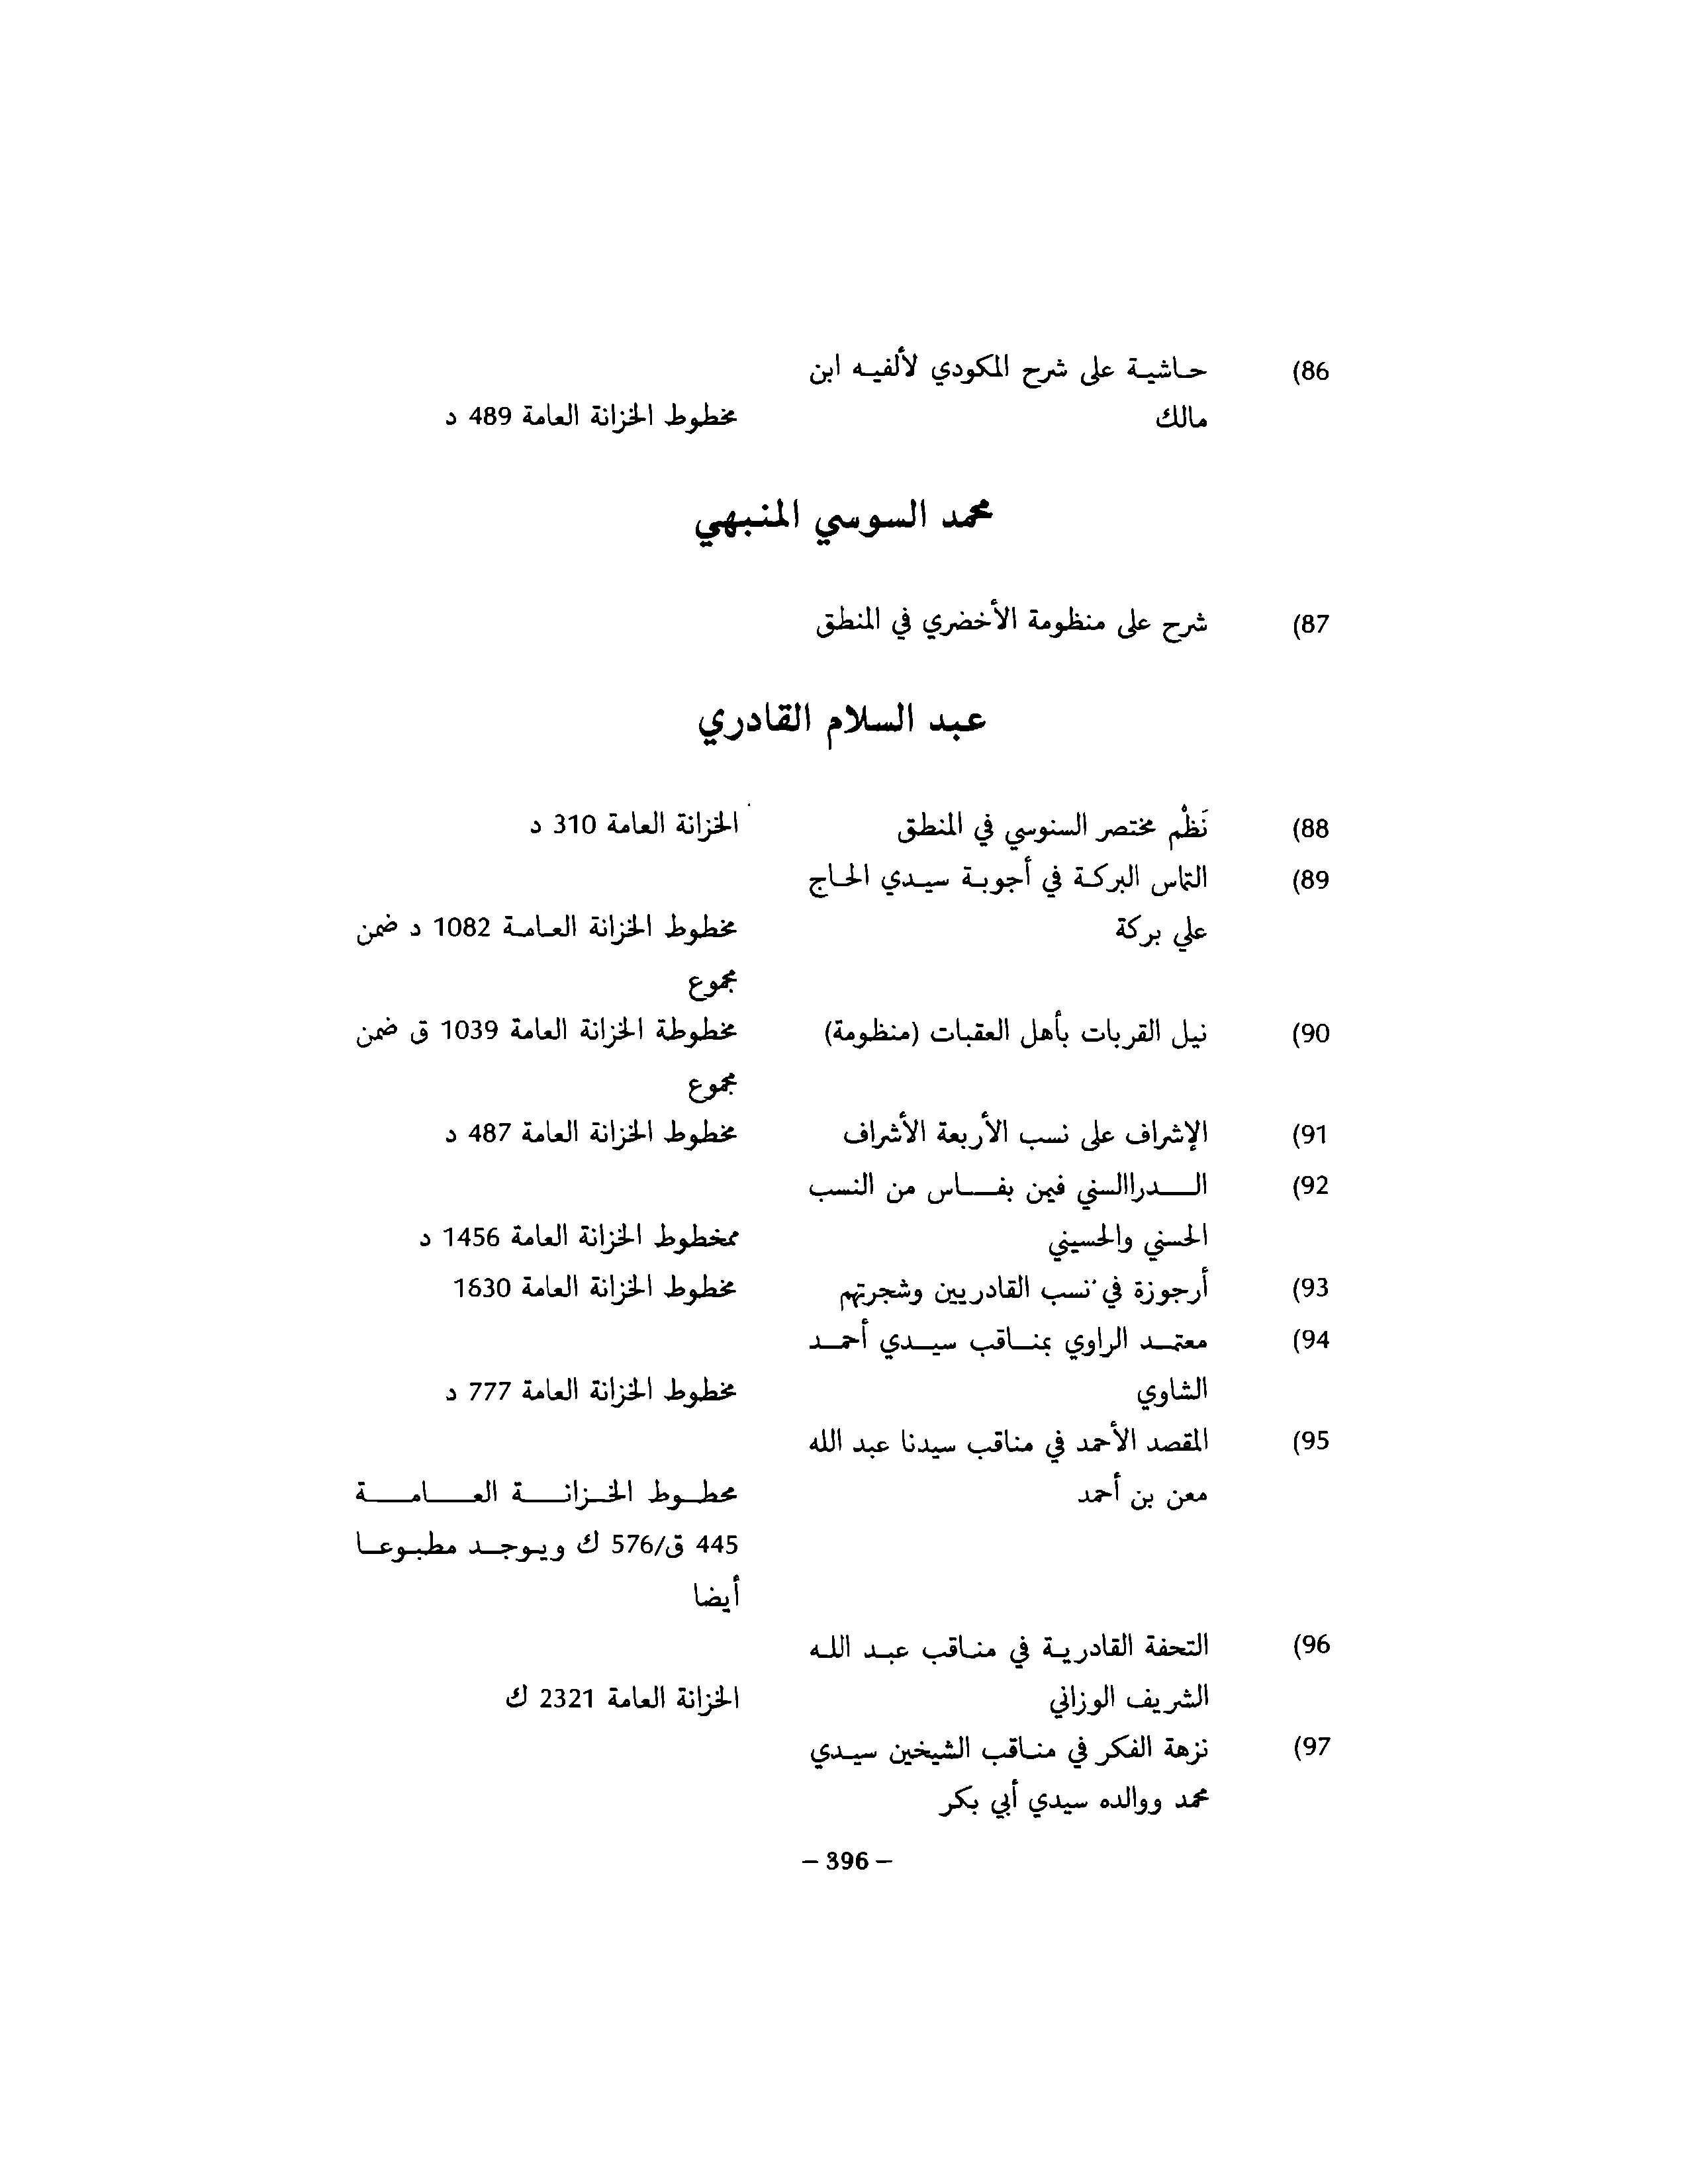 86) حاشية على شرح المكودي لألفيه ابن
مالك مخطوط الخزانة العامة 489 د
محمد السوسي المنبهي
87) شرح على منظومة الأخضري في المنطق
عبد السلام القادري
88) نَظْم مختصر السنوسي في المنطق الخزانة العامة 310 د
89) التماس البركة في أجوبة سيدي الحاج
علي بركة مخطوط الخزانة العامة 1082 د ضمن
مجموع
90) نيل القربات بأهل العقبات (منظومة) مخطوطة الخزانة العامة 1039 ق ضمن
مجموع
91) الإشراف على نسب الأربعة الأشراف مخطوط الخزانة العامة 487 د
92) الدراالسني فيمن بفاس من النسب
الحسني والحسيني ممخطوط الخزانة العامة 1456 د
93) أرجوزة في نسب القادريين وشجرتهم مخطوط الخزانة العامة 1630
94) معتمد الراوي بمناقب سيدي أحمد
الشاوي مخطوط الخزانة العامة 777 د
95) المقصد الأحمد في مناقب سيدنا عبد الله
معن بن أحمد محطوط الخزانة العامة
445 ق/576 ك ويوجد مطبوعا
أيضا
96) التحفة القادرية في مناقب عبد الله
الشريف الوزاني الخزانة العامة 2321 ك
97) نزهة الفكر في مناقب الشيخين سيدي
محمد ووالده سيدي أبي بكر
– 396 –